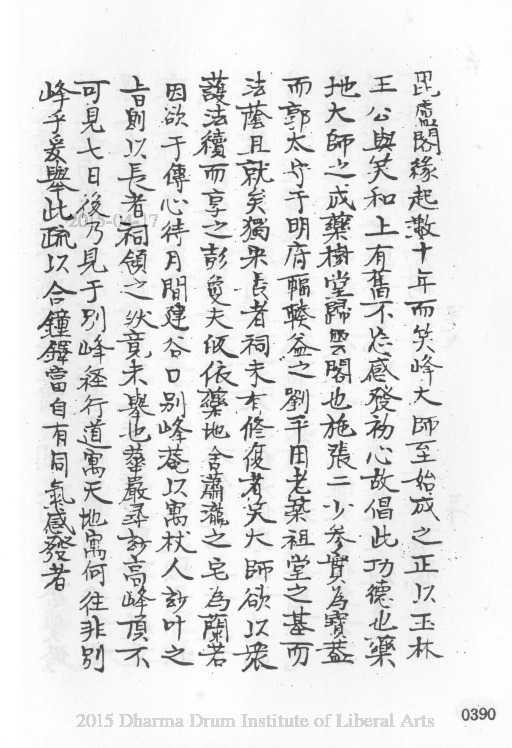 毘盧閣緣起數十年而笑峰大師至始成之正以玉林
王公與笑和上有舊不忘感發初心故倡此功德也藥
地大師之成藥樹堂歸雲閣也施張二少參實為寶蓋
而郭太守于明府輻輳益之劉平田老藥祖堂之基而
法蔭且就矣獨眾長者祠未有修復者笑大師欲以眾
護法續而享之彭叟夫依藥地舍蕭瀧之宅為蘭若
因欲于傳心待月間建谷口別峰菴以寓杖人諗叶之
旨則以長者祠領之然竟未舉也華嚴尋訪高峰頂不
可見七日後乃見于別峰經行道寓天地寓何往非別
峰乎爰舉此疏以合鐘鐸當自有同氣感發者
2015-04-17
0390
2015 Dharma Drum Institute of Liberal Arts